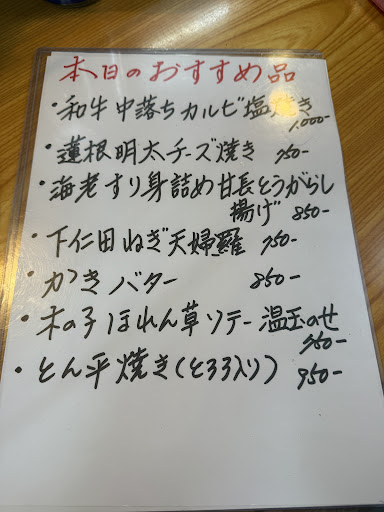 本日のおすすめ品
・和牛中落ちカルビ塩焼き
1,000-
・蓮根明太チーズ焼き 750-
・海老すり身詰め甘長とうがらし
揚げ 850-
・下仁田ねぎ天婦羅 750-
・かきバター 850-
・木の子ほれん草ソテー温玉のせ
750-
・とん平焼き(とろろ入り) 950-